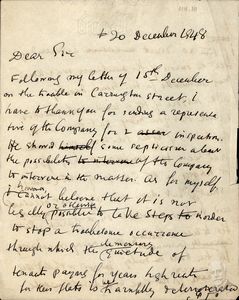 20 December 1948
Dear Sir
Following my letter of 15th December
on the trouble in Carrington Street, I
have to thank you for sending a represen
tive of the Company for inspection.
He showed some scepticism about
the possibility of the Company
to intervene in the matter. As for myself
I cannot believe that it is not
legally possible to take steps in order
to stop a troublesome occurrence
through which the quietude of
tenants payers for years high rents
in their flats is deteriorated